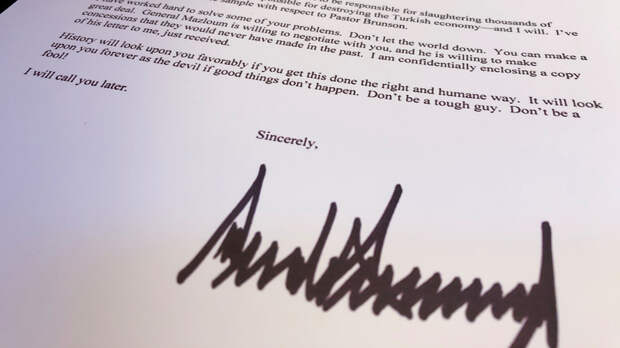 be responsible for slaughtering thousands of
for destroying the Turkish economy—and I will. I've
sample with respect to Pastor Brunson.
have worked hard to solve some of your problems. Don't let the world down. You can make a
great deal. General Mazloum is willing to negotiate with you, and he is willing to make
concessions that they would never have made in the past. I am confidentially enclosing a copy
of his letter to me, just received.
History will look upon you favorably if you get this done the right and humane way. It will look
upon you forever as the devil if good things don't happen. Don't be a tough guy. Don't be a
fool!
I will call you later.
Sincerely,